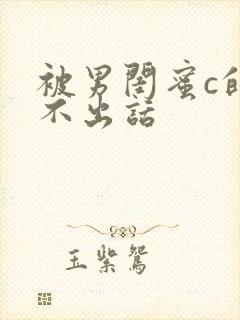 被男閨蜜c的
不出話
玉紫鴛